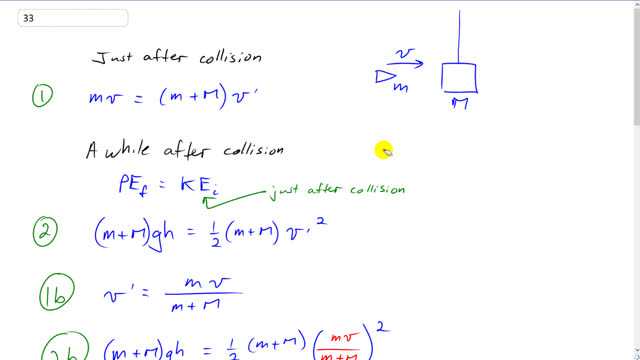 33
Just after collision
v
m
M
① mv = (m+M) v'
A while after collision
PE_f = KE_i
just after collision
② (m+M)gh = 1/2 (m+M) v'²
①b v' = mv / (m+M)
②b (m+M)gh = 1/2 (m+M) (mv / (m+M))²